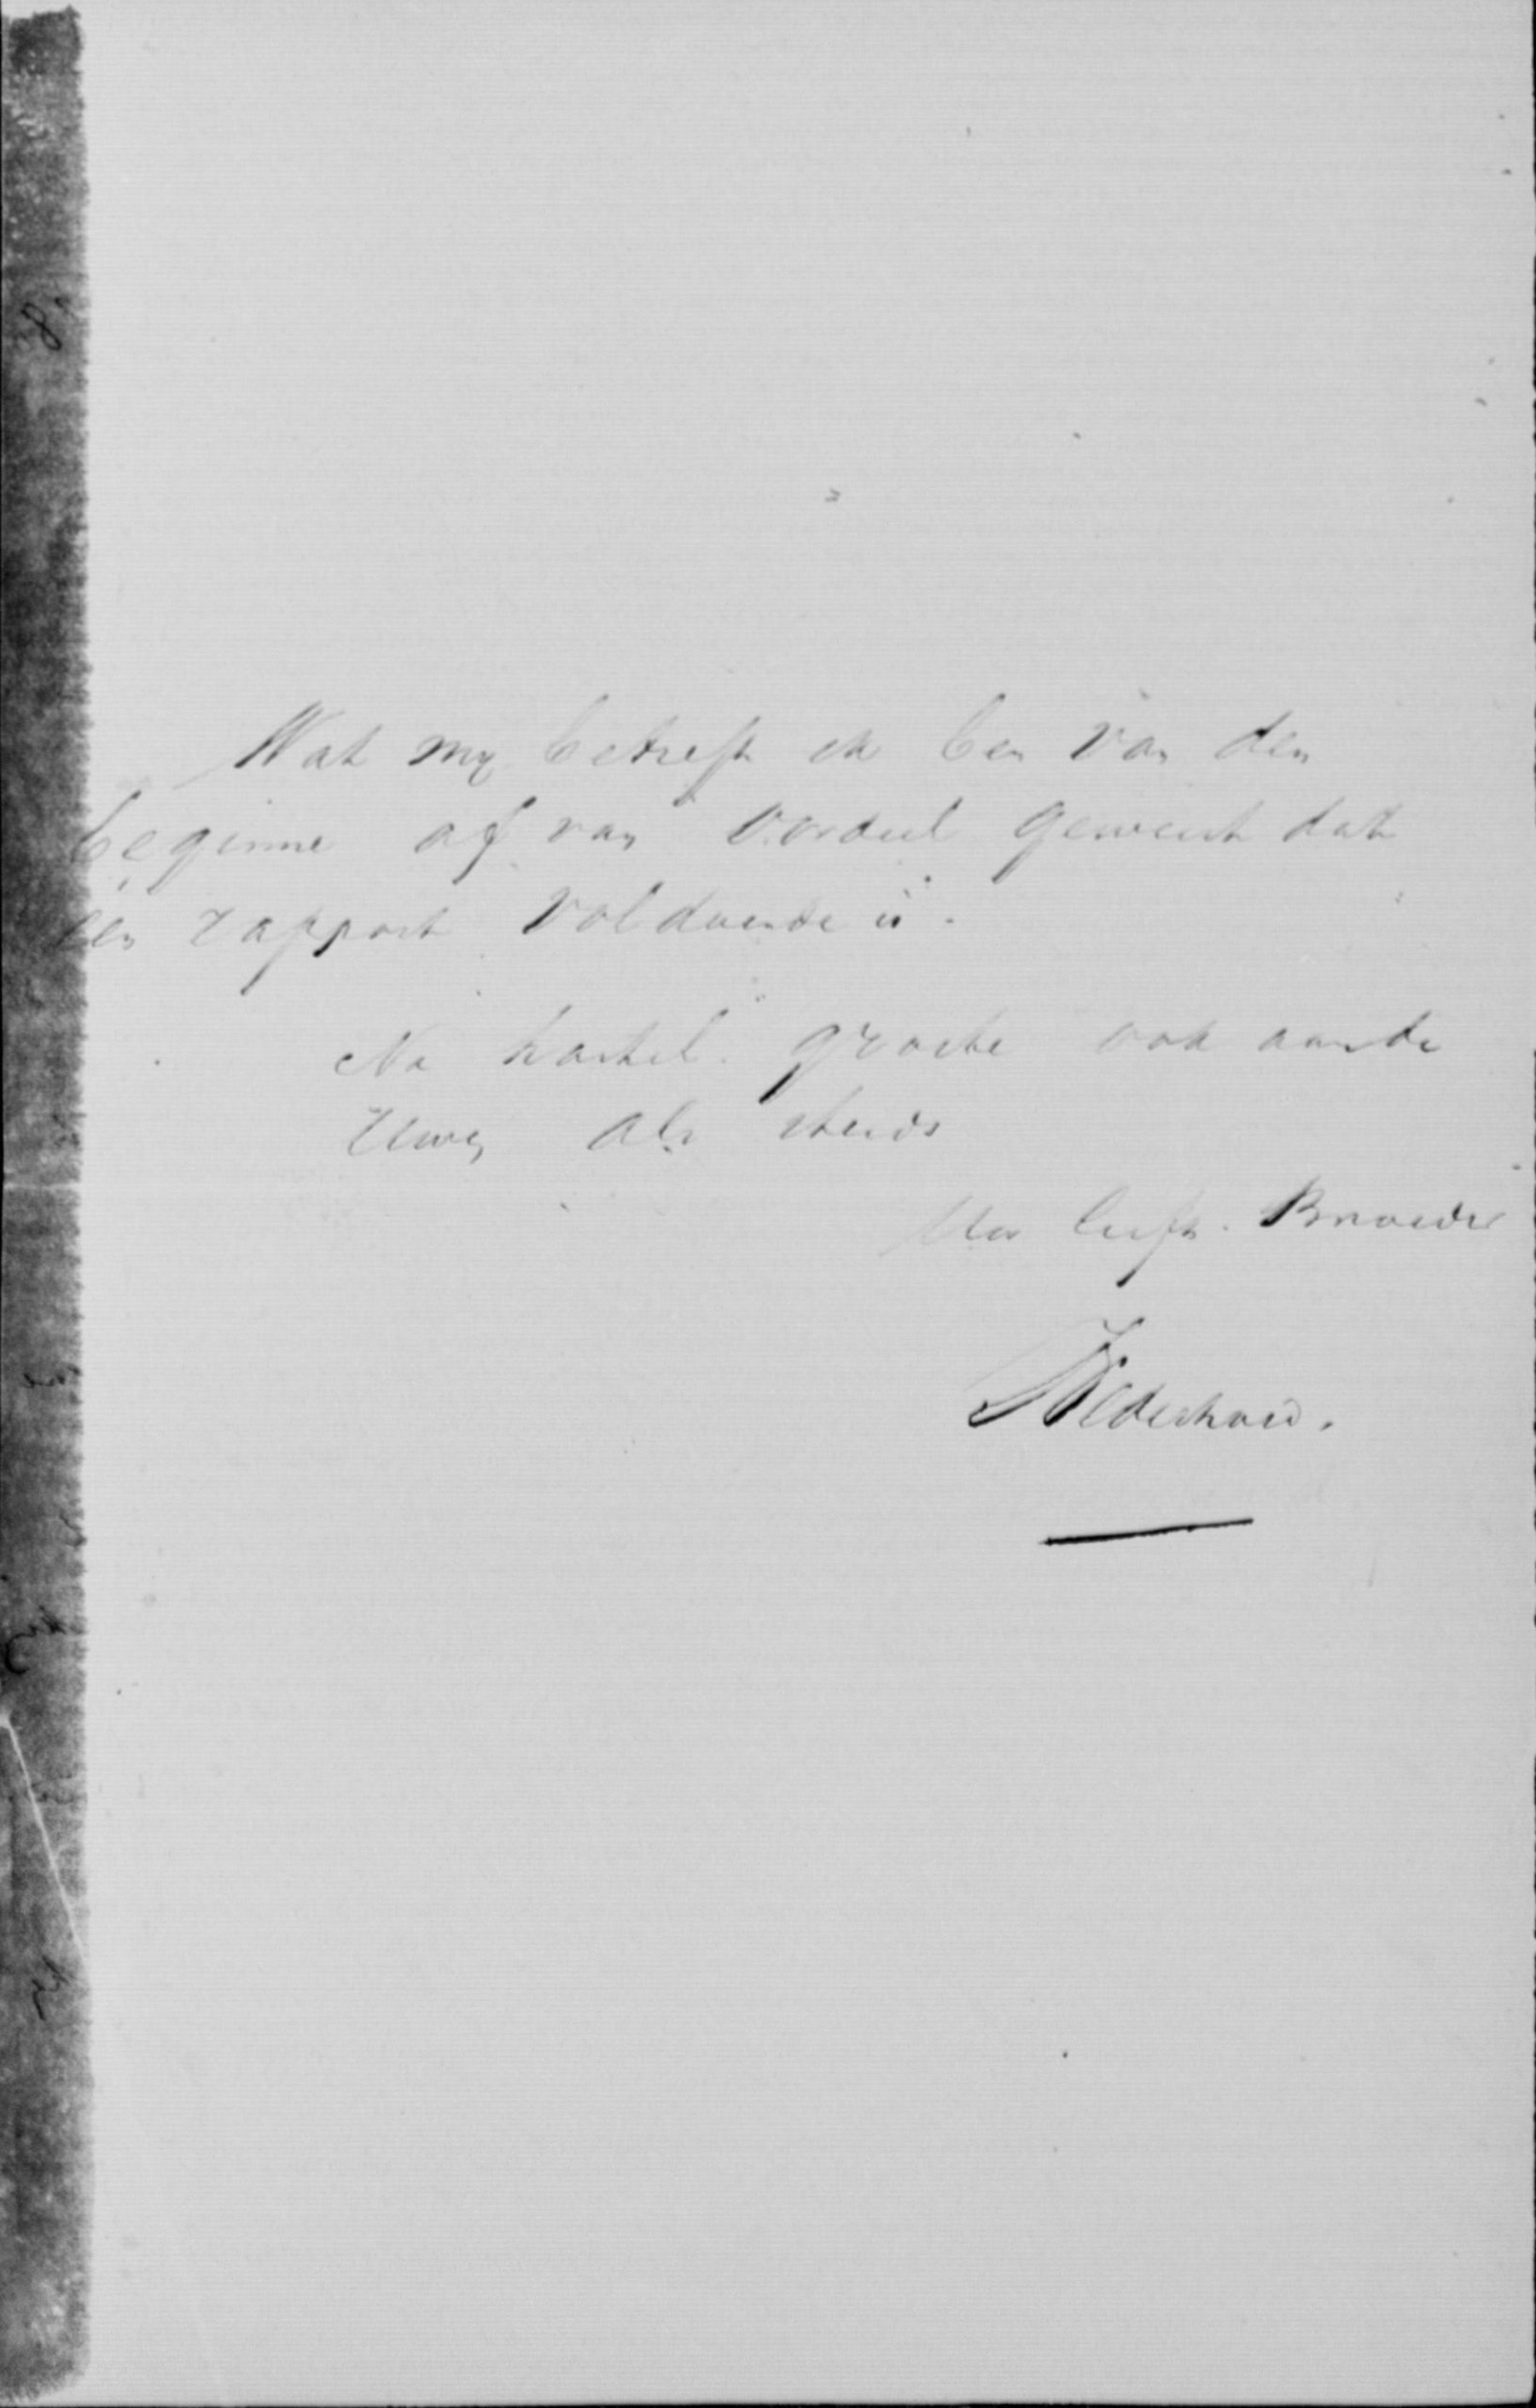 Wat my betreft ik ben van den
beginne af van oordeel geweest dat
een rapport voldoende is.
Na hartel. groete ook aan de
Uwen als steeds
Uw liefh. Broeder